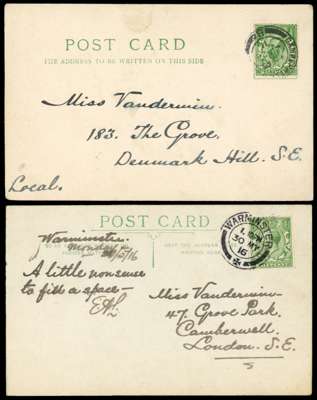 POST CARD
THE ADDRESS TO BE WRITTEN ON THIS SIDE
Miss Vandermin.
183. The Grove.
Denmark Hill. S.E.
Local.
POST CARD
WARMINSTER
30 MY
16
Warminster.
Monday
A little nonsense
to fill a space—
Miss Vandermin
47. Grove Park.
Camberwell.
London. S.E.